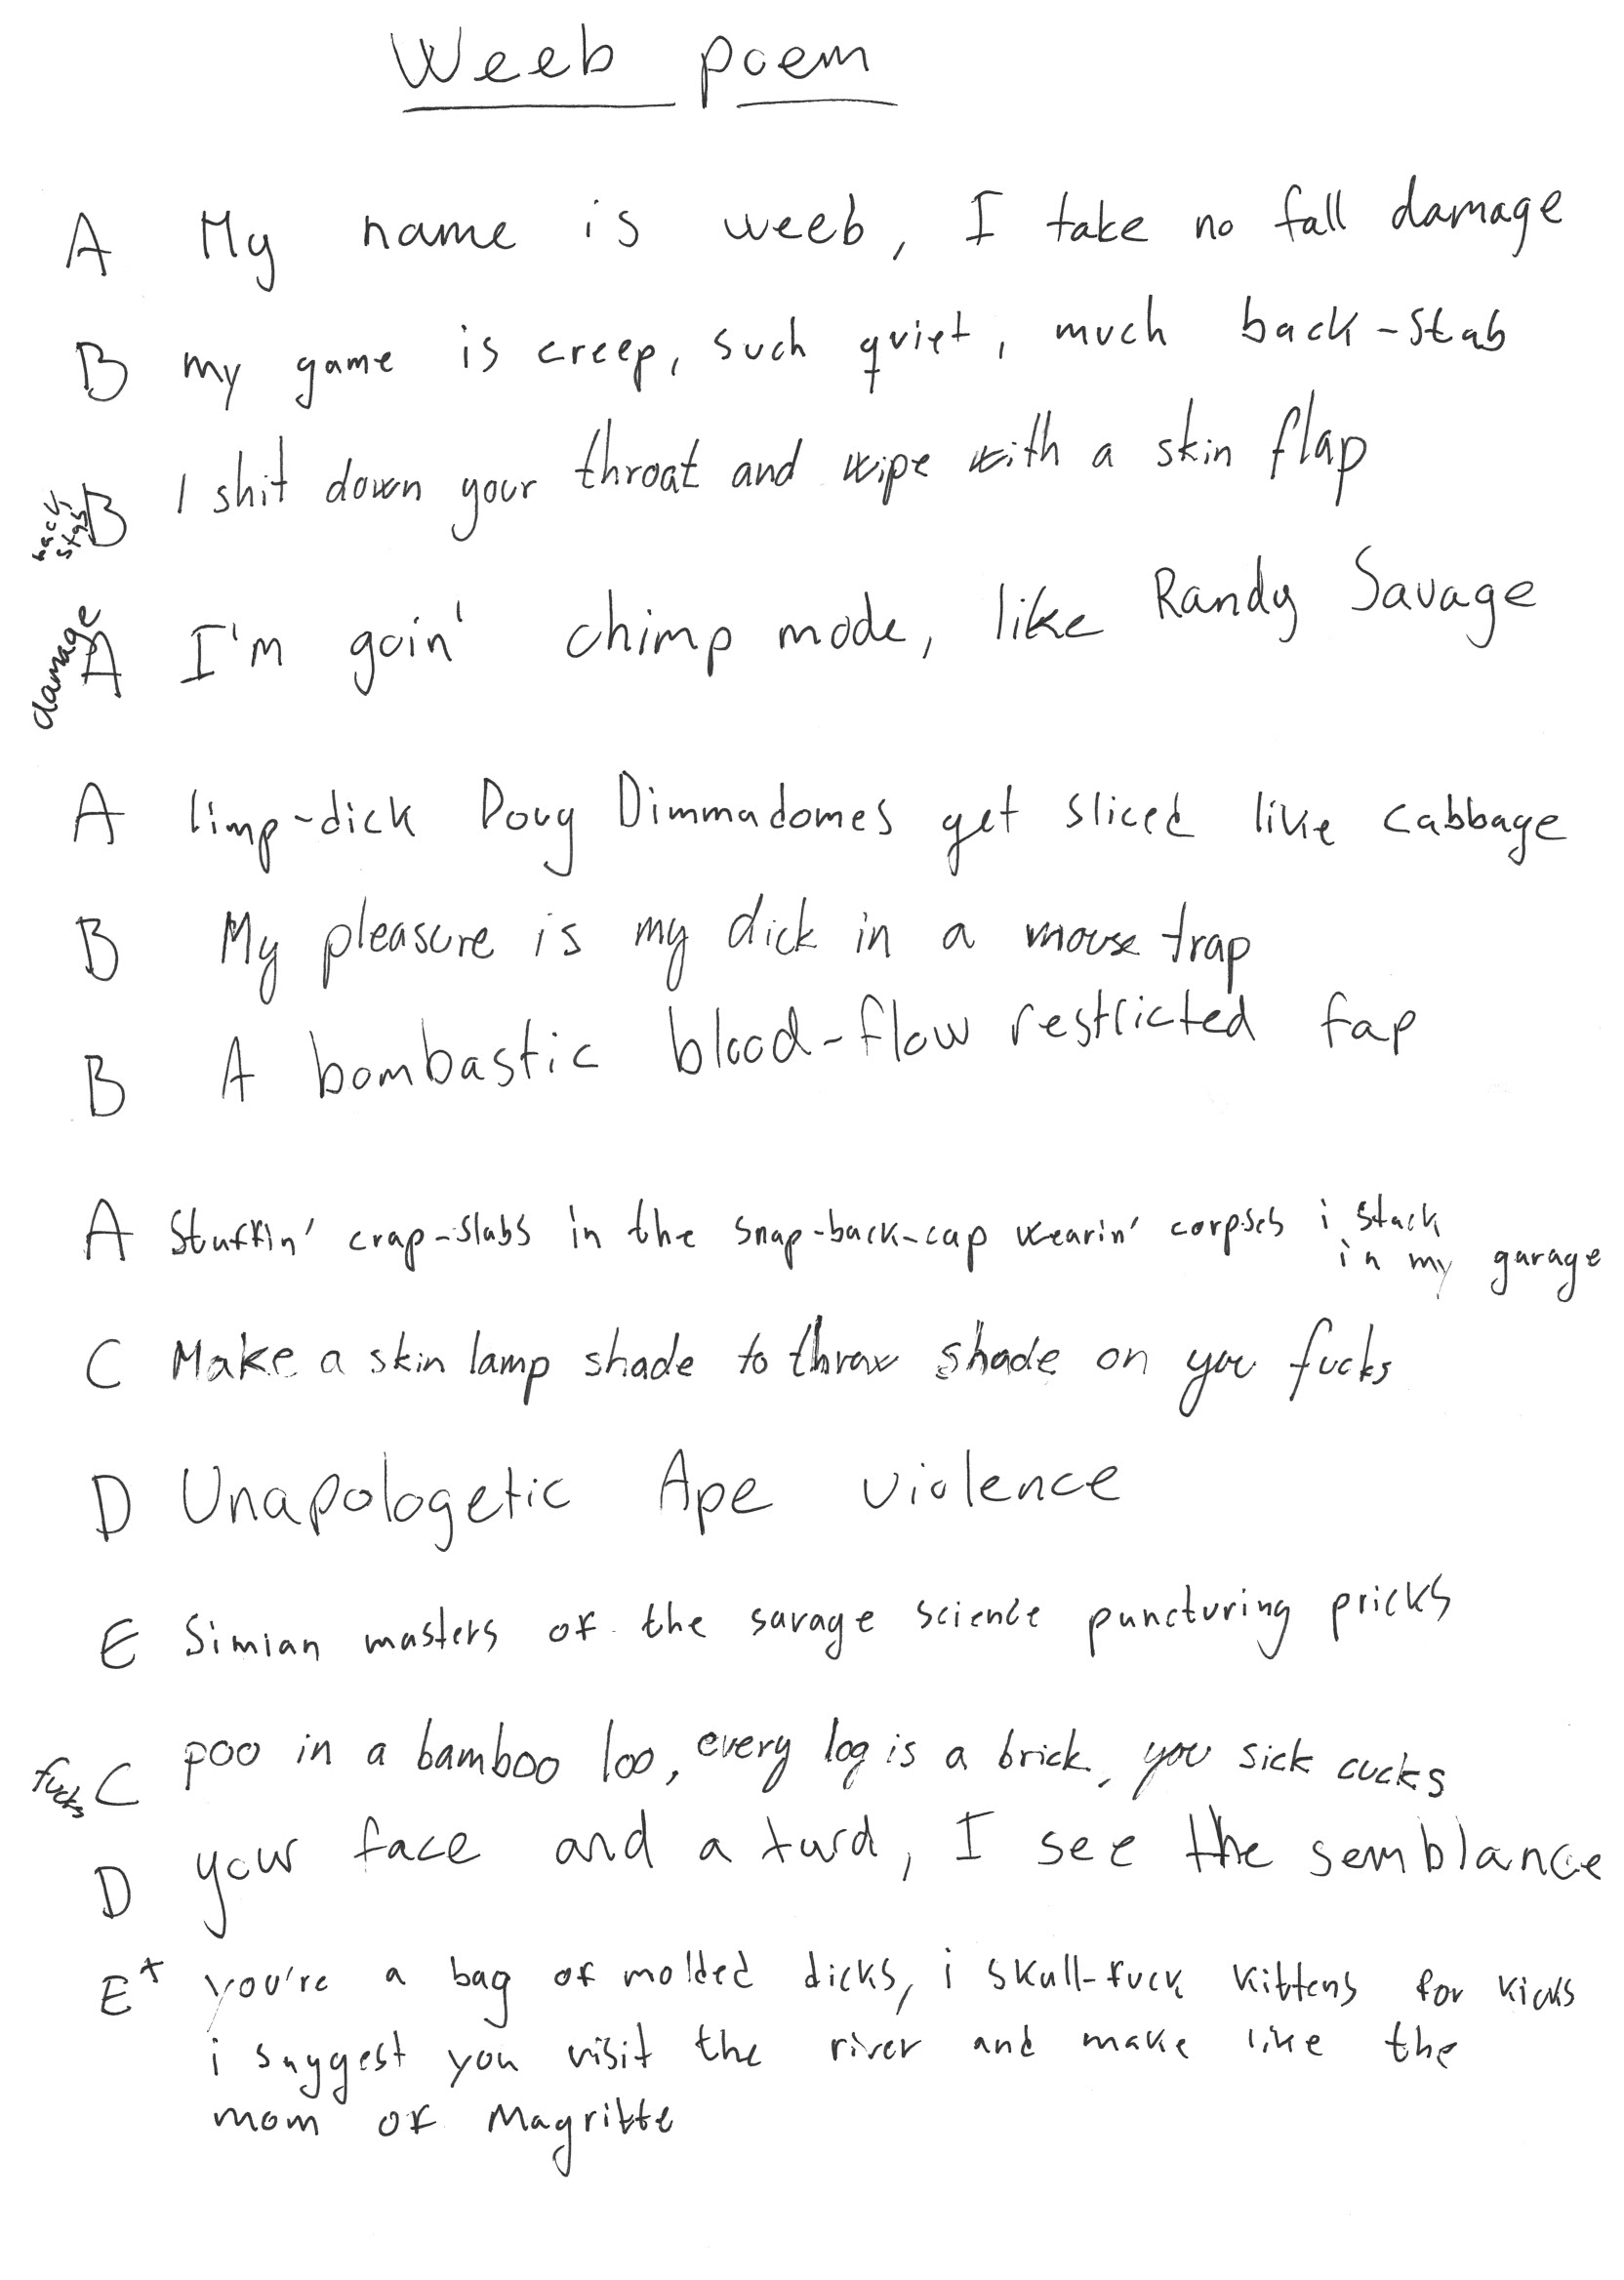 Weeb poem
A My name is weeb, I take no fall damage
B my game is creep, such quiet, much back-stab
back stab B I shit down your throat and wipe with a skin flap
damage A I'm goin' chimp mode, like Randy Savage
A limp-dick Doug Dimmadomes get sliced like cabbage
B My pleasure is my dick in a mouse trap
B A bombastic blood-flow restricted fap
A Stuffin' crap-slabs in the snap-back-cap wearin' corpses i stack
in my garage
C Make a skin lamp shade to throw shade on you fucks
D Unapologetic Ape violence
E Simian masters of the savage science puncturing pricks
fucks C poo in a bamboo loo, every log is a brick, you sick cucks
D your face and a turd, I see the semblance
E+ you're a bag of molded dicks, i skull-fuck kittens for kicks
i suggest you visit the river and make like the
mom of Magritte